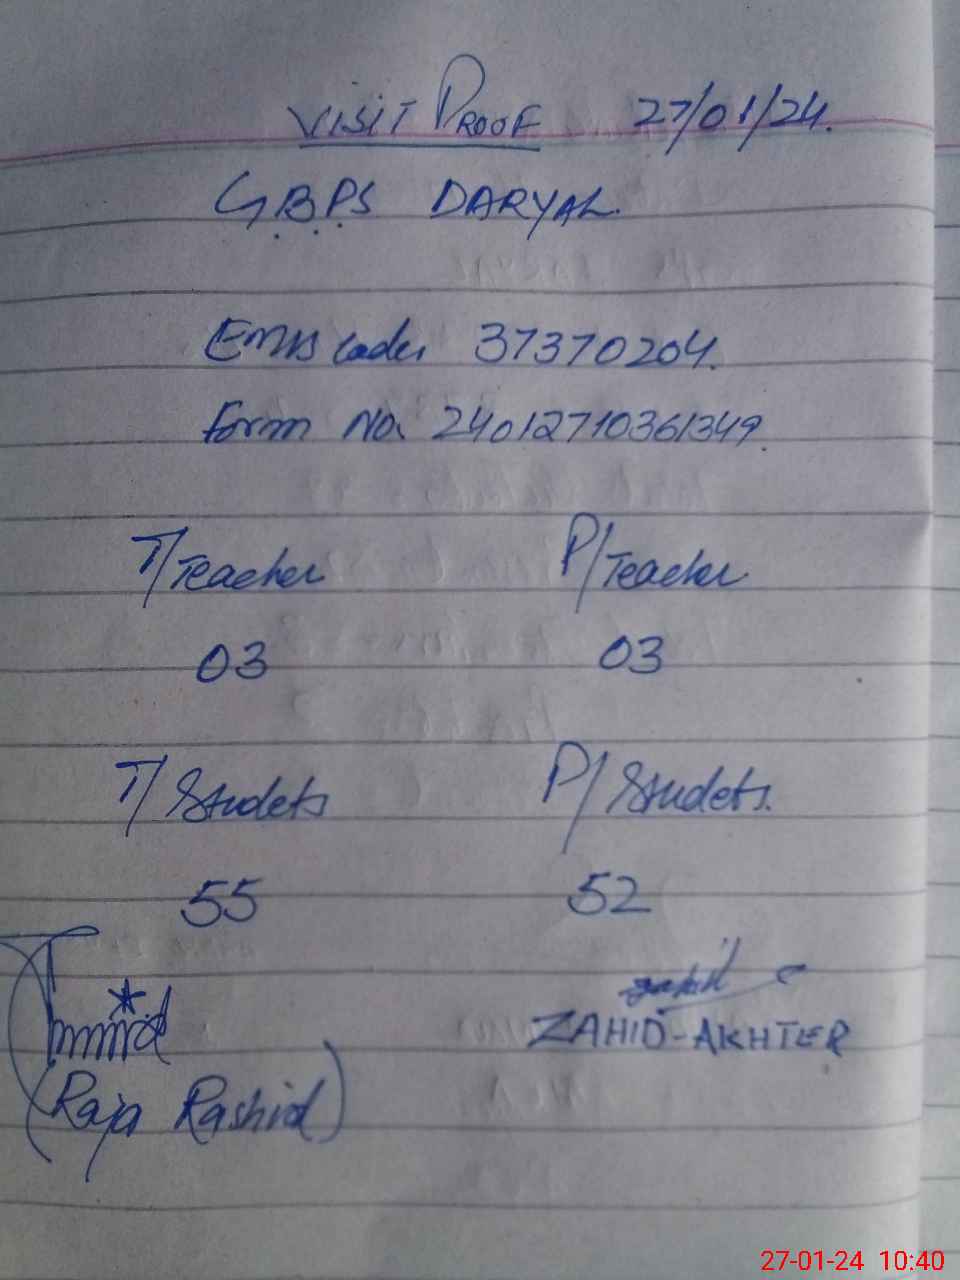 VISIT PROOF 27/01/24.
G.B.PS DARYAL.
Emis code 37370204.
Form No. 24012710361349.
T/Teacher P/Teacher
03 03
T/Studets P/Studets.
55 52
ZAHID-AKHTER
(Raja Rashid)
27-01-24 10:40